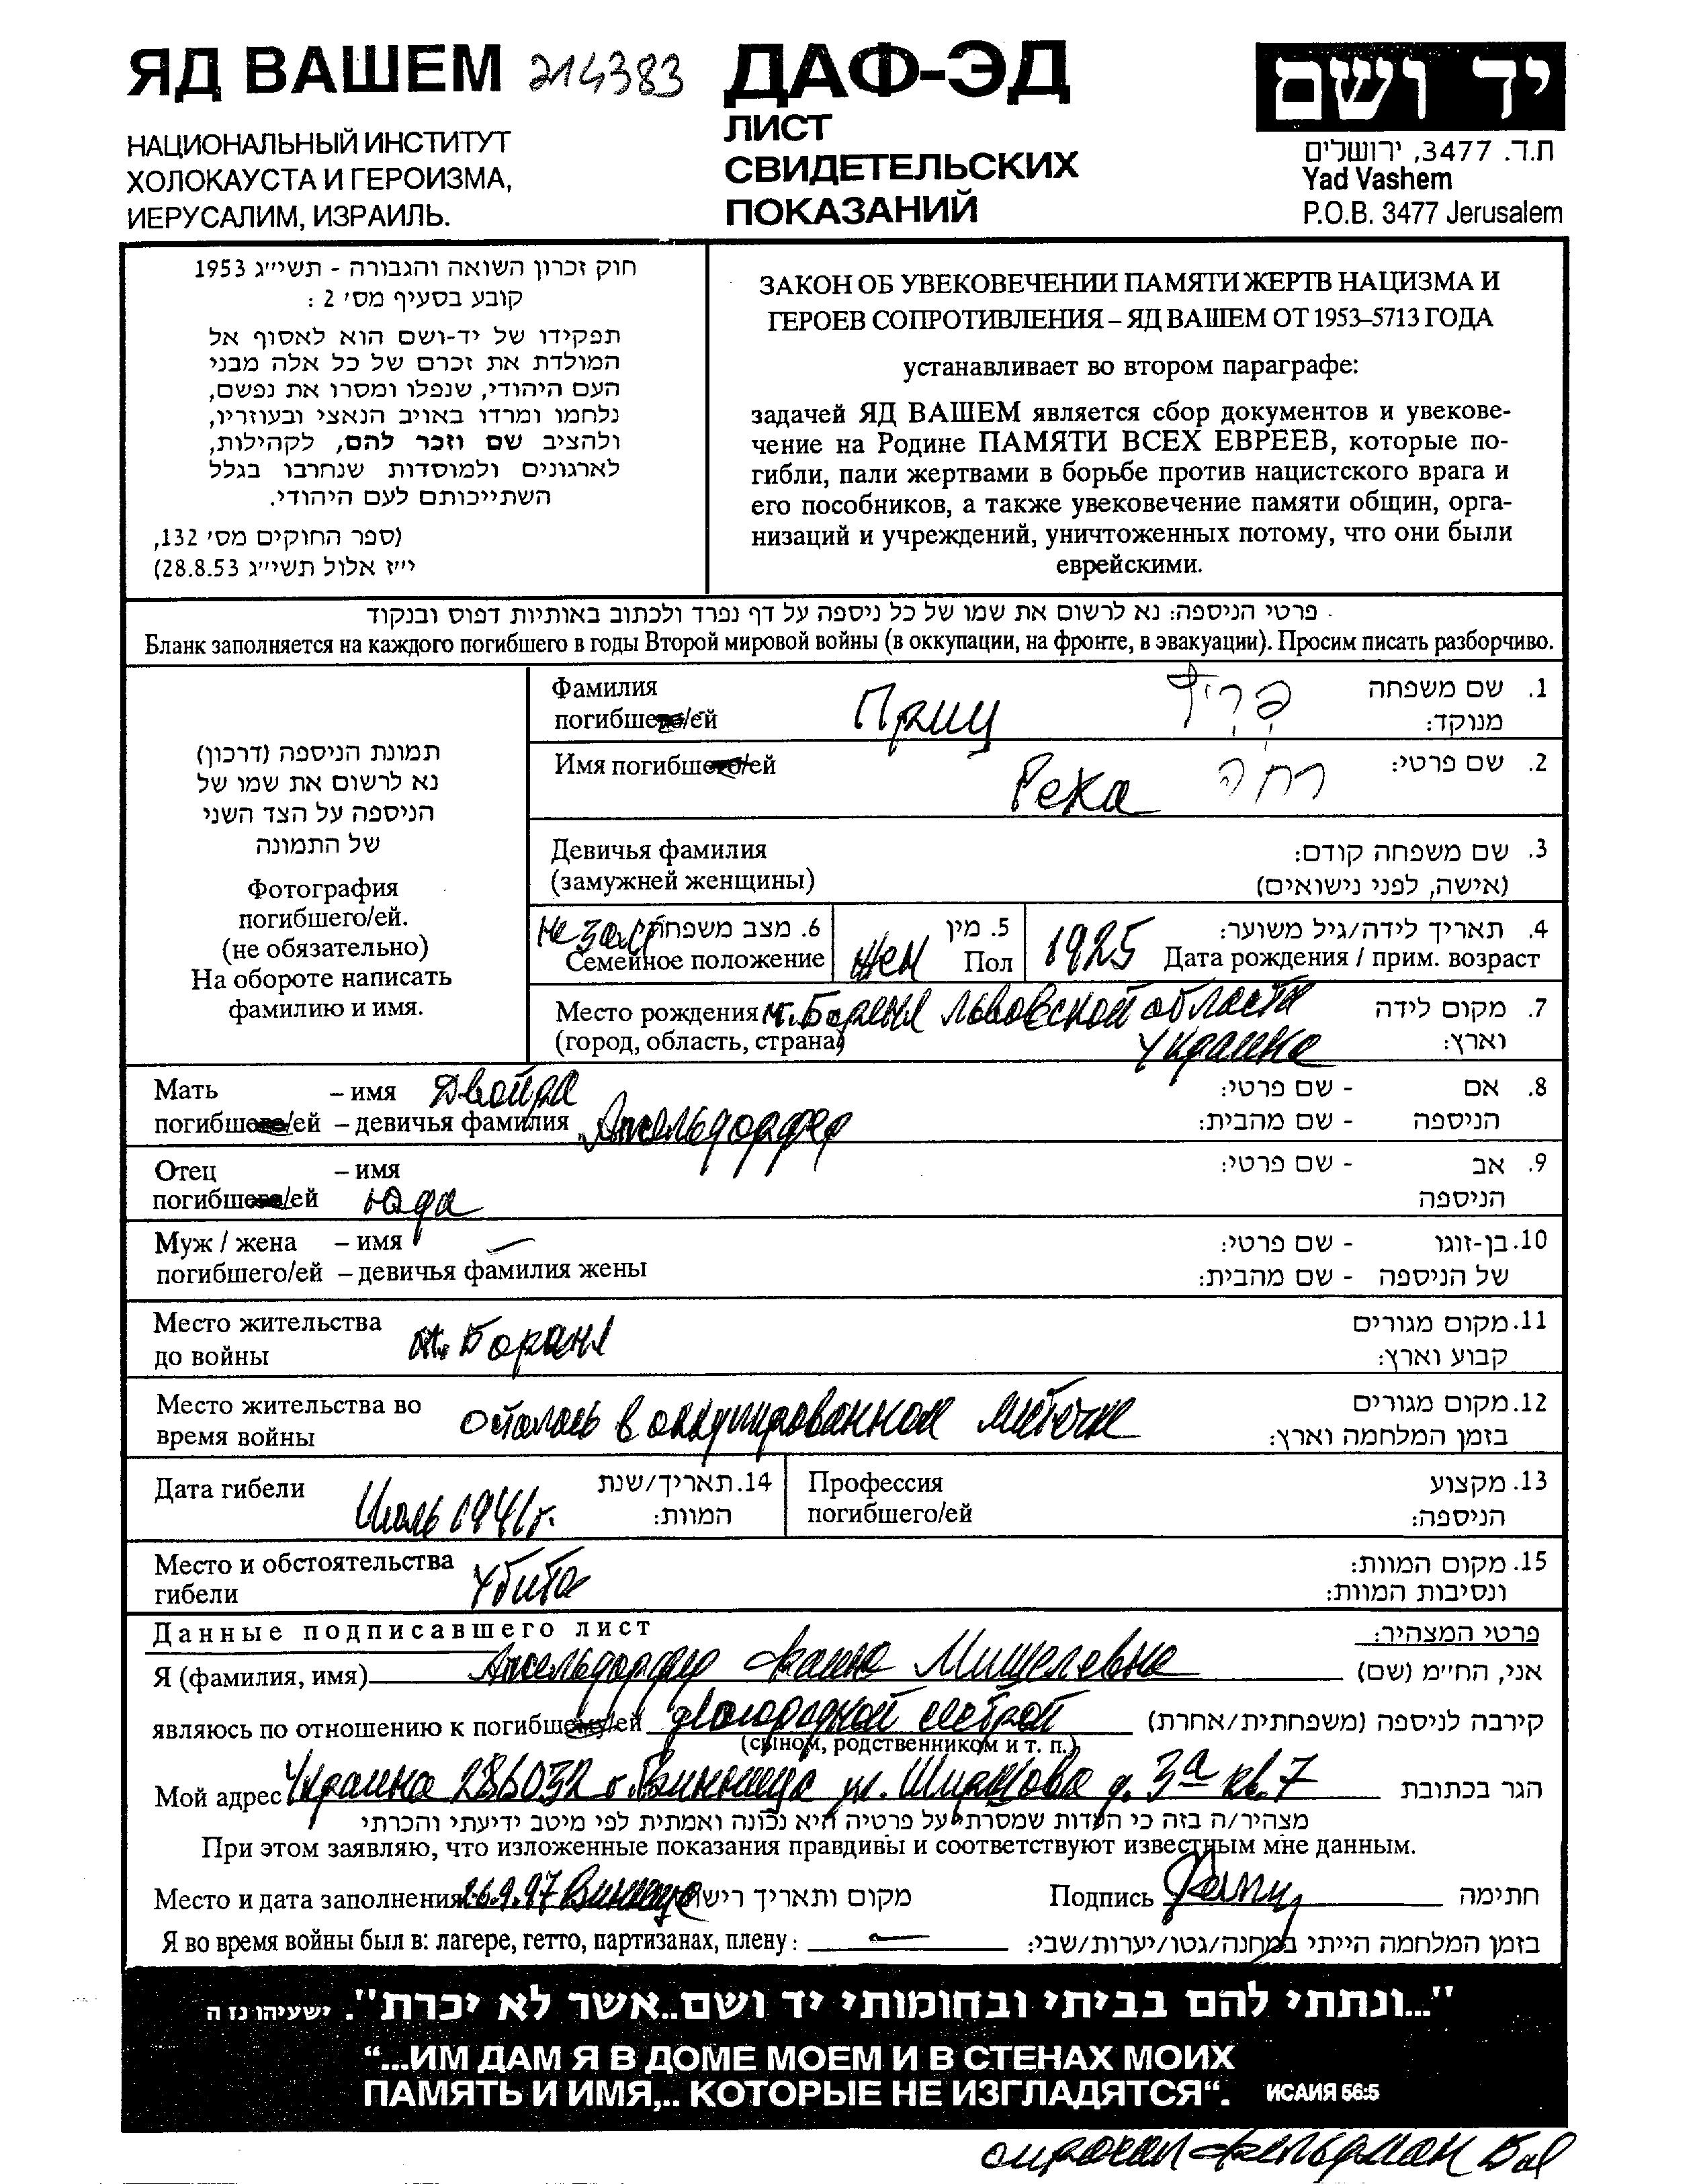 ЯД ВАШЕМ 214383
НАЦИОНАЛЬНЫЙ ИНСТИТУТ
ХОЛОКАУСТА И ГЕРОИЗМА,
ИЕРУСАЛИМ, ИЗРАИЛЬ.
ДАФ-ЭД
ЛИСТ
СВИДЕТЕЛЬСКИХ
ПОКАЗАНИЙ
יד ושם
ת.ד. 3477, ירושלים
Yad Vashem
P.O.B. 3477 Jerusalem
חוק זכרון השואה והגבורה - תשי״ג 1953
קובע בסעיף מס׳ 2 :
תפקידו של יד-ושם הוא לאסוף אל
המולדת את זכרם של כל אלה מבני
העם היהודי, שנפלו ומסרו את נפשם,
נלחמו ומרדו באויב הנאצי ובעוזריו,
ולהציב שם וזכר להם, לקהילות,
לארגונים ולמוסדות שנחרבו בגלל
השתייכותם לעם היהודי.
(ספר החוקים מס׳ 132,
י״ז אלול תשי״ג 28.8.53)
ЗАКОН ОБ УВЕКОВЕЧЕНИИ ПАМЯТИ ЖЕРТВ НАЦИЗМА И
ГЕРОЕВ СОПРОТИВЛЕНИЯ – ЯД ВАШЕМ ОТ 1953–5713 ГОДА
устанавливает во втором параграфе:
задачей ЯД ВАШЕМ является сбор документов и увекове-
чение на Родине ПАМЯТИ ВСЕХ ЕВРЕЕВ, которые по-
гибли, пали жертвами в борьбе против нацистского врага и
его пособников, а также увековечение памяти общин, орга-
низаций и учреждений, уничтоженных потому, что они были
еврейскими.
פרטי הניספה: נא לרשום את שמו של כל ניספה על דף נפרד ולכתוב באותיות דפוס ובנקוד
Бланк заполняется на каждого погибшего в годы Второй мировой войны (в оккупации, на фронте, в эвакуации). Просим писать разборчиво.
תמונת הניספה (דרכון)
נא לרשום את שמו של
הניספה על הצד השני
של התמונה
Фотография
погибшего/ей.
(не обязательно)
На обороте написать
фамилию и имя.
Фамилия 1. שם משפחה
погибшего/ей Приц פריץ מנוקד:
Имя погибшего/ей Реха רחה 2. שם פרטי:
Девичья фамилия 3. שם משפחה קודם:
(замужней женщины) (אישה, לפני נישואים)
Не зам 6. מצב משפחתי 5. מין 4. תאריך לידה/גיל משוער:
Семейное положение жен Пол 1925 Дата рождения / прим. возраст
Место рождения м. Бориня Львовской области 7. מקום לידה
(город, область, страна) Украина וארץ:
Мать – имя Двойра 8. אם - שם פרטי:
погибшего/ей – девичья фамилия Аксельдорфер הניספה - שם מהבית:
Отец – имя 9. אב - שם פרטי:
погибшего/ей Юда הניספה
Муж / жена – имя – 10. בן-זוגו - שם פרטי:
погибшего/ей – девичья фамилия жены של הניספה - שם מהבית:
Место жительства 11. מקום מגורים
до войны м. Бориня קבוע וארץ:
Место жительства во 12. מקום מגורים
время войны осталась в оккупированном местечке בזמן המלחמה וארץ:
Дата гибели Июль 1941г. 14. תאריך/שנת המוות:
Профессия 13. מקצוע
погибшего/ей הניספה:
Место и обстоятельства 15. מקום המוות:
гибели Убита ונסיבות המוות:
Данные подписавшего лист פרטי המצהיר:
Я (фамилия, имя) Аксельдорфер Фаина Мишелевна אני, הח״מ (שם)
являюсь по отношению к погибшему/ей двоюродной сестрой קירבה לניספה (משפחתית/אחרת)
(сыном, родственником и т. п.)
Мой адрес Украина 286032 г. Винница ул. Ширшова д. 3а кв. 7 הגר בכתובת
מצהיר/ה בזה כי העדות שמסרתי על פרטיה היא נכונה ואמתית לפי מיטב ידיעתי והכרתי
При этом заявляю, что изложенные показания правдивы и соответствуют известным мне данным.
Место и дата заполнения 26.9.97 Винница מקום ותאריך רישום Подпись חתימה
Я во время войны был в: лагере, гетто, партизанах, плену : – בזמן המלחמה הייתי במחנה/גטו/יערות/שבי:
"...ונתתי להם בביתי ובחומותי יד ושם..אשר לא יכרת". ישעיהו נז ה
“...ИМ ДАМ Я В ДОМЕ МОЕМ И В СТЕНАХ МОИХ
ПАМЯТЬ И ИМЯ,.. КОТОРЫЕ НЕ ИЗГЛАДЯТСЯ“. ИСАИЯ 56:5
Фельдман